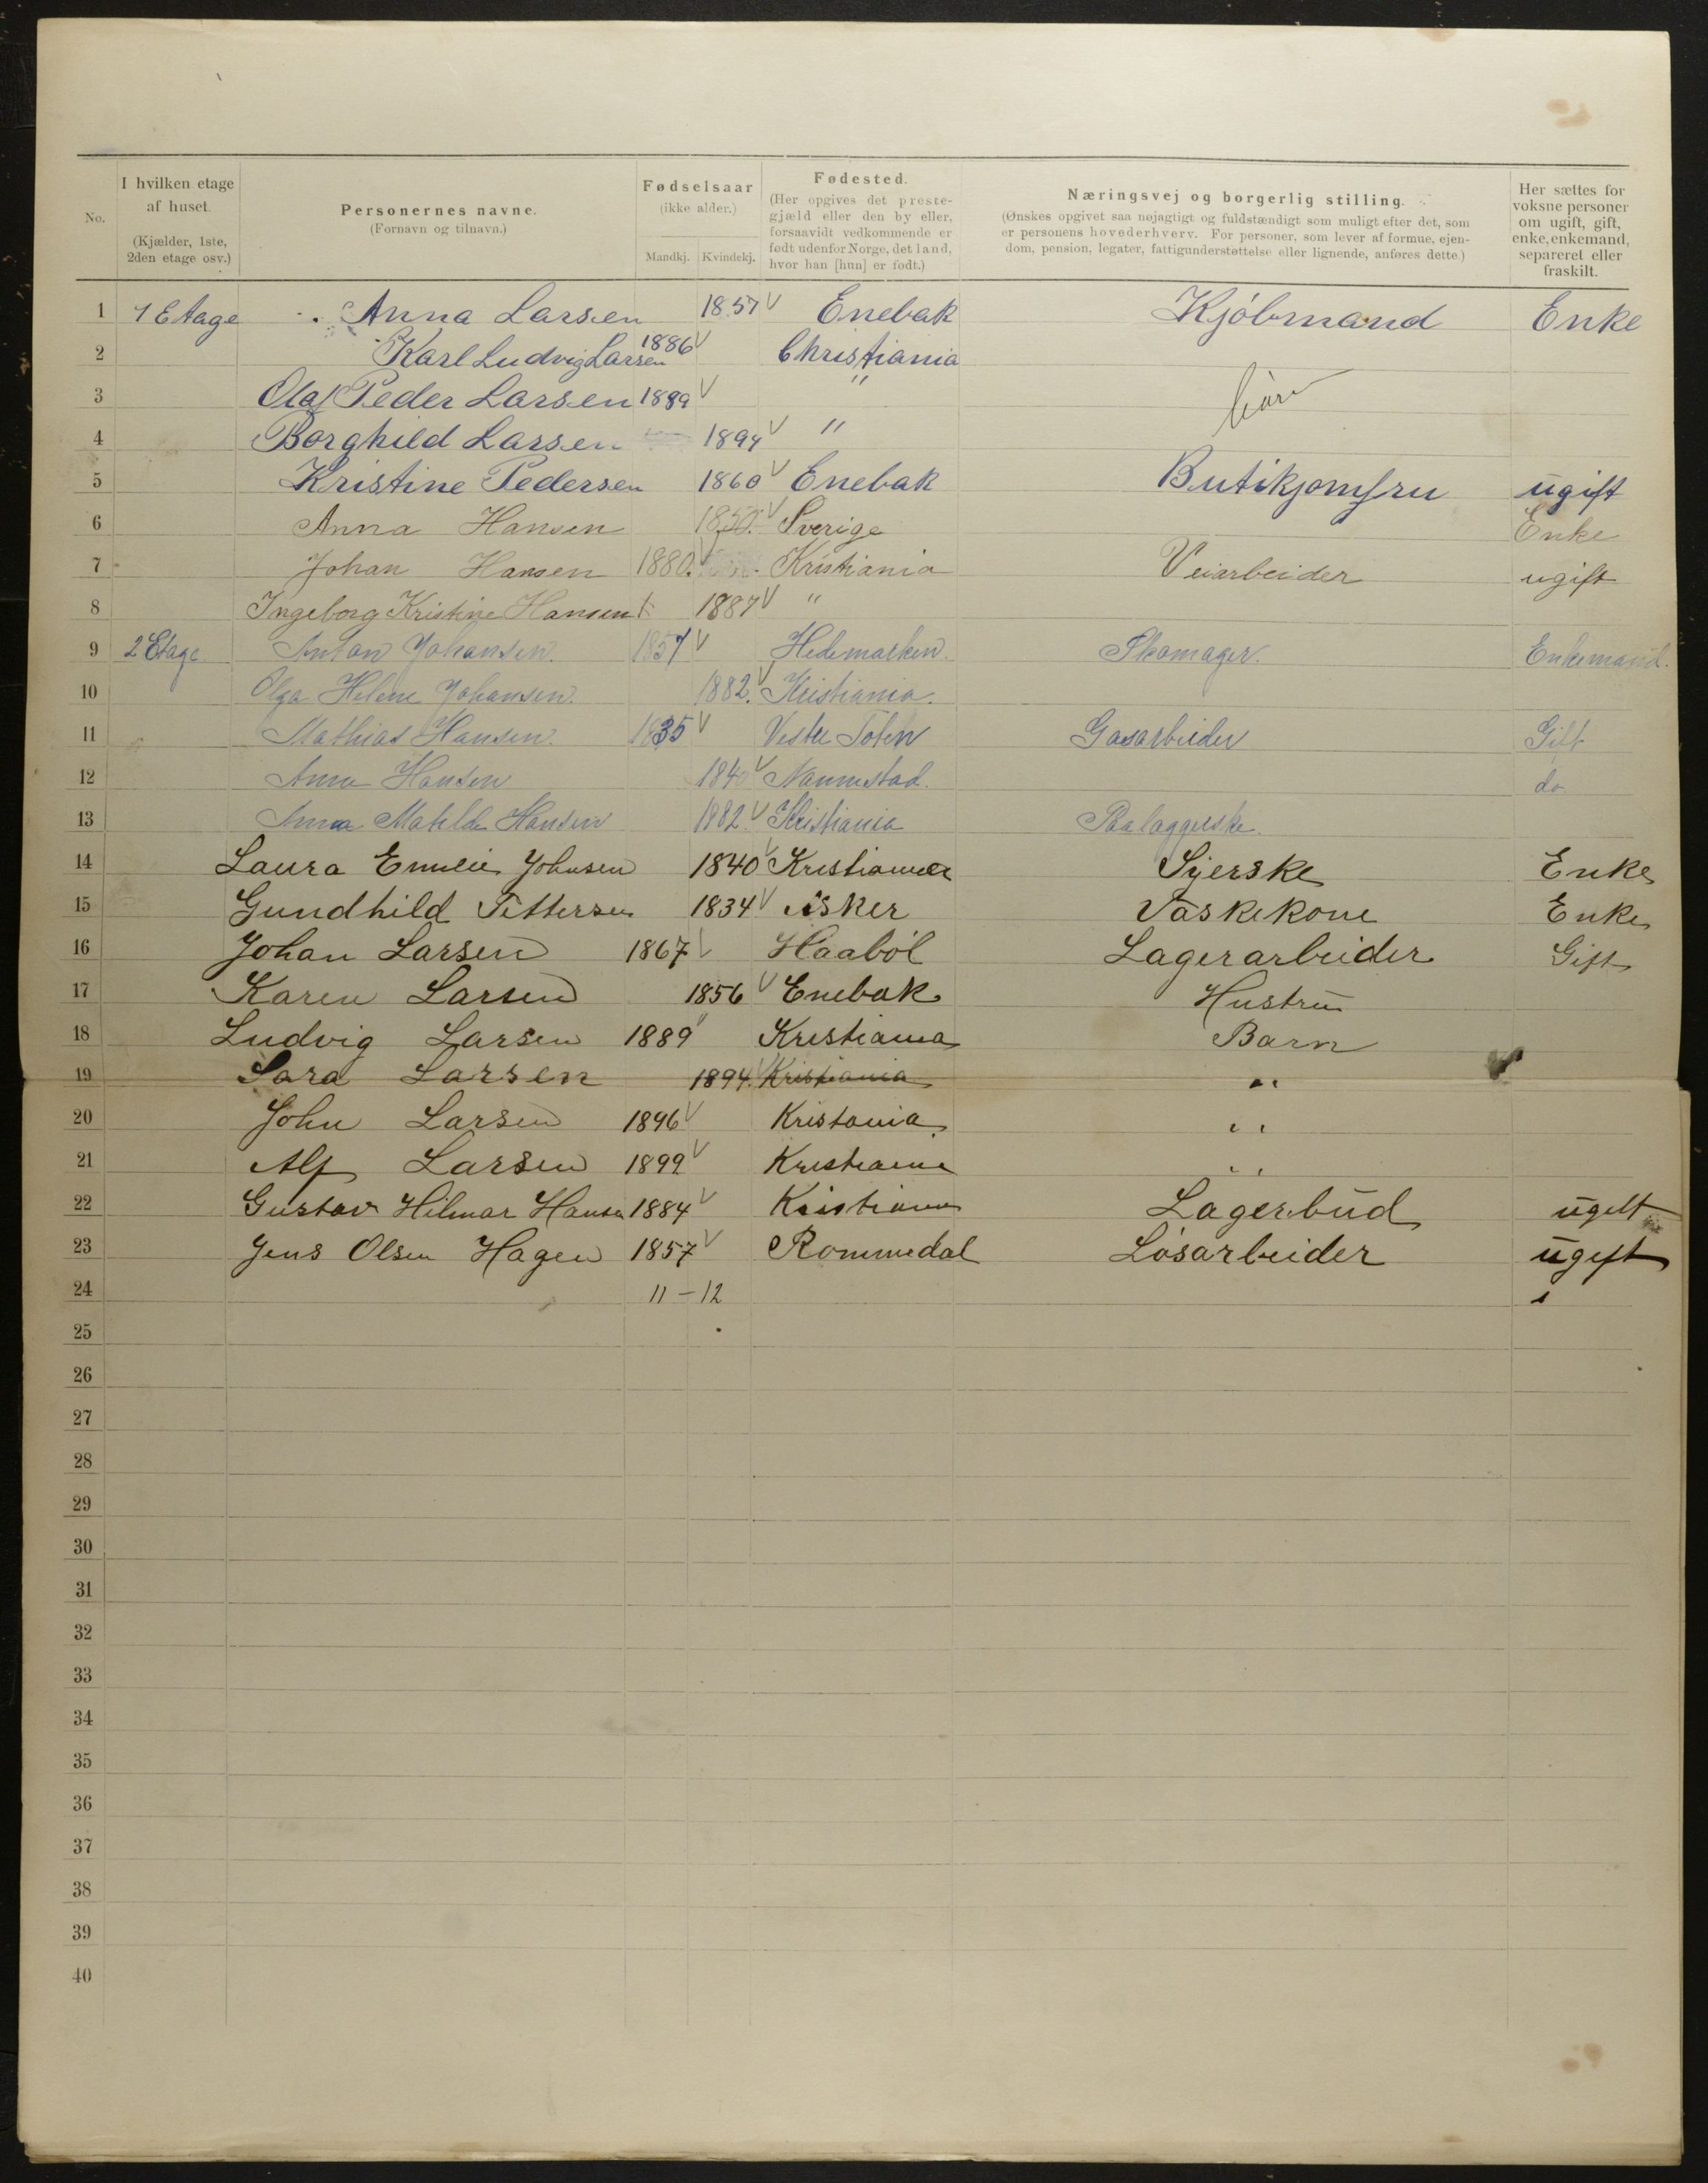 No.
I hvilken etage af huset.
(Kjælder, 1ste, 2den etage osv.)
Personernes navne.
(Fornavn og tilnavn.)
Fødselsaar
(ikke alder.)
Mandkj. Kvindekj.
Fødested.
(Her opgives det prestegjæld eller den by eller, forsaavidt vedkommende er født udenfor Norge, det land, hvor han [hun] er født.)
Næringsvej og borgerlig stilling.
(Ønskes opgivet saa nøjagtigt og fuldstændigt som muligt efter det, som er personens hovederhverv. For personer, som lever af formue, ejendom, pension, legater, fattigunderstøttelse eller lignende, anføres dette.)
Her sættes for voksne personer om ugift, gift, enke, enkemand, separeret eller fraskilt.
1 1 Etage Anna Larsen 1857 Enebak Kjøbmand Enke
2 Karl Ludvig Larsen 1886 Christiania
3 Olaf Peder Larsen 1889 "
4 Borghild Larsen 1894 "
5 Kristine Pedersen 1860 Enebak Butikjomfru ugift
6 Anna Hansen 1850. Sverige Enke
7 Johan Hansen 1880. Kristiania Veiarbeider ugift
8 Ingeborg Kristine Hansen 1887 "
9 2 Etage Anton Johansen. 1857 Hedemarken. Skomager. Enkemand.
10 Olga Helene Johansen. 1882. Kristiania.
11 Mathias Hansen. 1835 Vestre Toten Gasarbeider Gift
12 Anna Hansen 1840 Nannestad. do.
13 Anna Matilde Hansen 1882. Kristiania Paalæggerske.
14 Laura Emilie Johnsen 1840 Kristiania Syerske Enke
15 Gundhild Pettersen 1834 Asker Vaskekone Enke
16 Johan Larsen 1867 Haabøl Lagerarbeider Gift
17 Karen Larsen 1856 Enebak Hustru
18 Ludvig Larsen 1889 Kristiania Barn
19 Sara Larsen 1894. Kristiania "
20 John Larsen 1896 Kristania "
21 Alf Larsen 1899 Kristiania "
22 Gustav Hilmar Hansen 1884 Kristiania Lagerbud ugift
23 Jens Olsen Hagen 1857 Rommedal Løsarbeider ugift
24 11-12
25
26
27
28
29
30
31
32
33
34
35
36
37
38
39
40